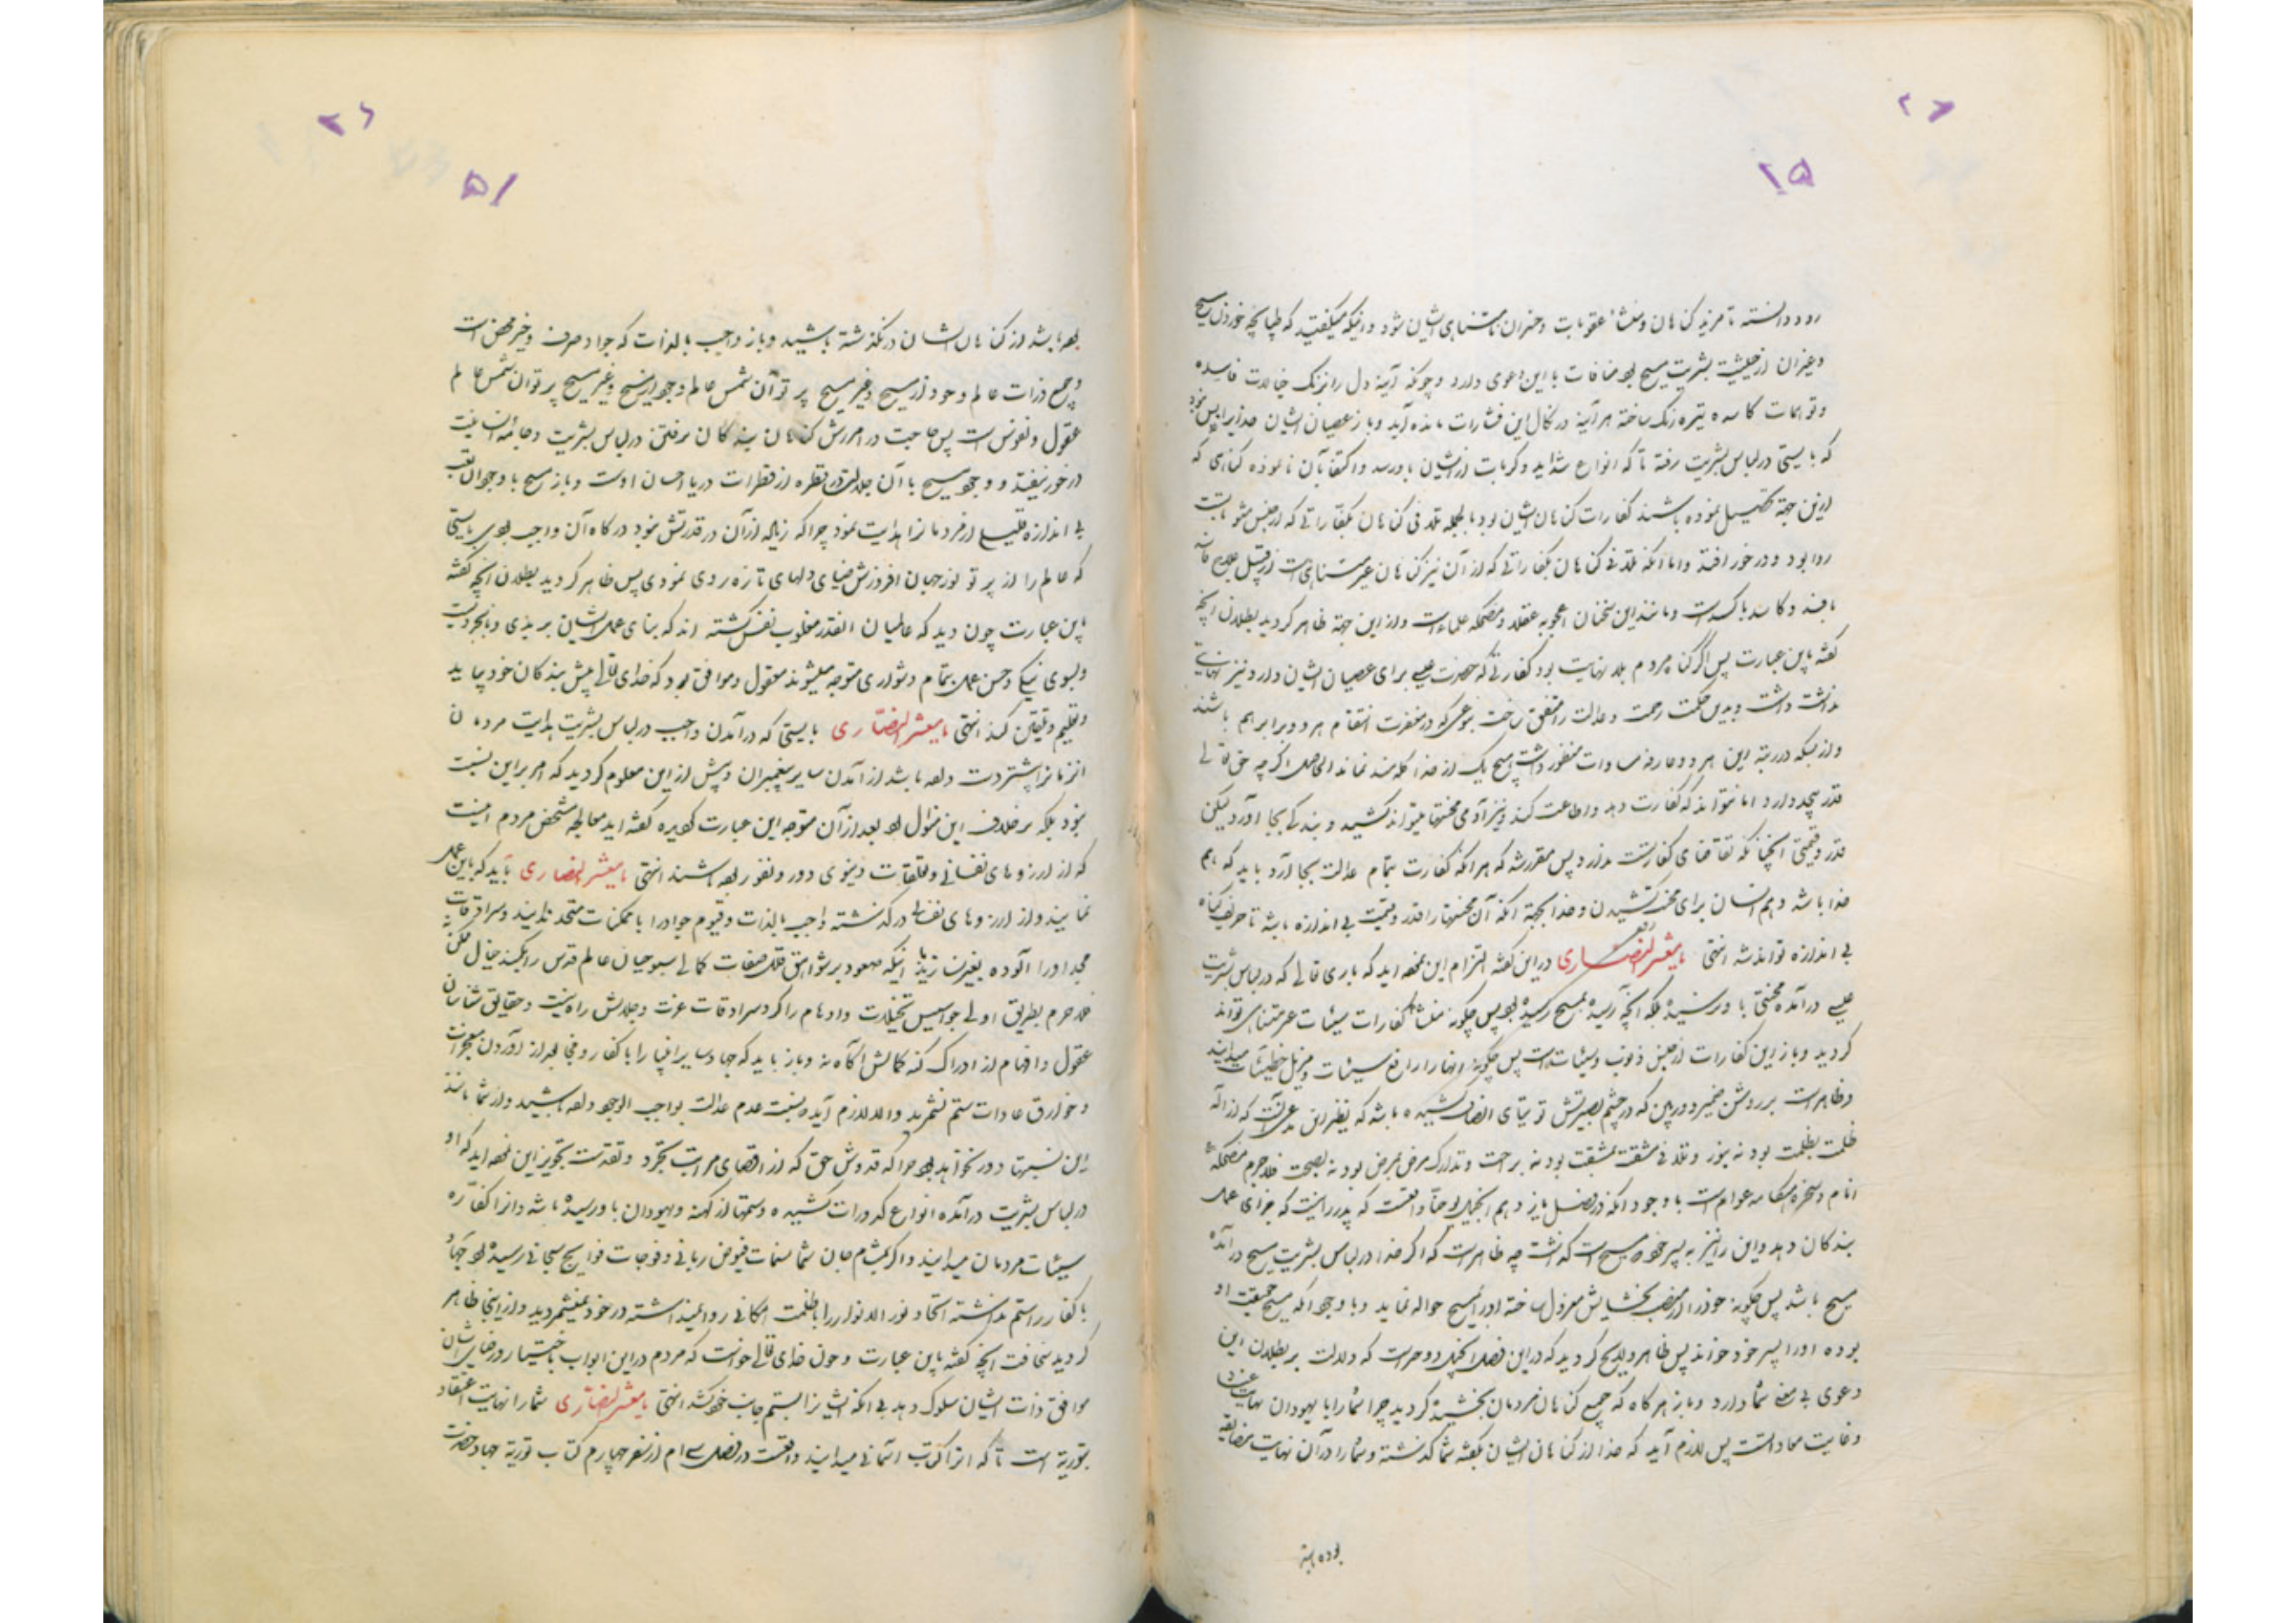 ۲۶
۲۵
روا دانسته تا مزید گناهان و منشاء عقوبات و خسران نامتناهی ایشان شود و اینکه میگفتید که طپانچه خوردن مسیح
و غیر آن از حیثیت بشریت مسیح بود منافات با این دعوی دارد و چونکه آینهٔ دل را بزنک خیالات فاسده
و توهمات کاسده تیره رنگ ساخته هر آینه در کال این فشارات مانده آید و باز عصیان ایشان
که بایستی در لباس بشریت رفته تا که انواع شداید و کربات از ایشان باو رسد و اکتفا بآن نانموده کناهی که
ازین جهة تحصیل نموده باشند کفارات کناهان ایشان بود بالجمله تلافی کناهان بکفاراتی که از جنس مثوبات است
روا بود و در خور افتد و اما آنکه تلافی کناهان بکفاراتی که از آن نیز کناهان غیر متناهی است از قبیل
و مانند این سخنان اعجوبه عقلا و مضحکه علماء است و از این جهة ظاهر کردید بطلان آنچه
کفته باین عبارت پس اگر گناه مردم بلا نهایت بود کفارتی که حضرت عیسی برای عصیان ایشان دارد نیز نهایتی
نداشت و بدین حکمت رحمت و عدالت را متفق ساخت بنوعی که در مغفرت انتقام هر دو برابر هم باشند
و از بسکه در رتبه این هر دو عارفه مساوات منظور داشت مسیح یک از خدا کله مند نماند الحاصل اگر چه حق تعالی
قدر بیحد دارد اما نتواند که کفارت دهد و اطاعت کند و نیز آدمی محنتها میتواند کشید و بندکی بجا آورد لیکن
قدر و قیمتی آنچنانکه تقاضای کفارتست ندارد پس مقرر شد که هر آنکه کفارت بتمام عدالت بجا آرد باید که هم
خدا باشد و هم انسان برای محنت کشیدن و خدا بجهة آنکه آن محنتها را قدر و قیمت بی اندازه باشد تا حریف کناه
بی اندازه تواند شد انتهی یا معشر النصاری در این کفته التزام این نموده اید که باری تعالی که در لباس بشریت
عیسی در آمده محنتی باو نرسیده بلکه آنچه رسیده بمسیح رسیده بود پس چکونه منشاء کفارات سیئات غیر متناهی تواند
کردید و باز این کفارات از جنس ذنوب و سیئات است پس چکونه اینها را رافع سیئات و مزیل خطیئات میدانید
و ظاهر است بر روشن ضمیر دوربین که در چشم بصیرتش توتیای انصاف کشیده باشد که
ظلمت بظلمت بود نه بنور و تلافی مشقت بمشقت بود نه براحت و تدارک مرض بمرض بود نه بصحت فلا جرم مضحکهٔ
انام و سخرهٔ هنکامه عوام است با وجود آنکه در فصل پانزدهم انجیل یوحنا واقعست که پدر را نیست که جزای عمل
بندکان دهد و این را نیز به پسر خود مسیح است کذاشت چه ظاهر است که اگر خدا در لباس بشریت مسیح در آمده
مسیح باشد پس چکونه خود را از منصب بخشایش معزول ساخته او را بمسیح حواله نماید و با وجود آنکه مسیح حقیقت او
بوده او را پسر خود خواند پس ظاهر و لایح کردید که در این فصل انجیل دو حرف است که دلالت بر بطلان این
دعوی بی معنی شما دارد و باز هر کاه که جمیع کناهان مردمان بخشیده کردید چرا شما را با یهودان نهایت عناد
و غایت معاداتست پس لازم آید که خدا از کناهان ایشان بکفته شما کذشته و شما را در آن نهایت مضایقه
بوده باشد
۲۶
۵۱
بوده باشد از کناهان ایشان در نکذشته باشید و باز واجب بالذات که جواد صرف و خیر محض است
و جمیع ذرات عالم وجود از مسیح و غیر مسیح پرتو آن شمس عالم وجود از مسیح و غیر مسیح پرتو آن شمس عالم
عقول و نفوس است پس حاجت در آمرزش کناهان بندکان برفتن در لباس بشریت و جامه انسانیت
در خور نیفتد و وجود مسیح با آن جلالت قطره از قطرات دریا احسان اوست و باز مسیح با وجود آن تعب
بی اندازه قلیلی از مردمانرا هدایت نمود چرا که زیاده از آن در قدرتش نبود در کاه آن واجب بود بایستی
که عالم را از پرتو نور جهان افروزش ضیای دلهای تازه روی نمودی پس ظاهر کردید بطلان آنچه کفته
باین عبارت چون دید که عالمیان آنقدر مغلوب نفس کشته اند که بنای عمل ایشان بر بدی و نابخردیست
و بسوی نیکی و حسن عمل بتمام دشواری متوجه میشوند معقول و موافق بود که خدای تعالی پیش بندکان خود بیاید
و تعلیم و تلقین کند انتهی یا معشر النصاری بایستی که در آمدن واجب در لباس بشریت هدایت مردمان
آنزمانرا پیشتر دست داده باشد از آمدن سایر پیغمبران و پیش از این معلوم کردید که امر بر این نسبت
نبود بلکه بر خلاف این منوال بود بعد از آن متوجه این عبارت کردیده کفته اید معالجه مشخص مردم اینست
که از آرزوهای نفسانی و تعلقات دنیوی دور و نفور بوده باشند انتهی یا معشر النصاری باید که باین عمل
نمایید و از آرزوهای نفسانی در کذشته واجب بالذات و قیوم جواد را با ممکنات متحد ندانید و سرادقات
مجد او را آلوده بغیر نسازید زیرا
فلا جرم بطریق اولی جواسیس تخیلات و اوهام را کرد سرادقات عزت و جلالش راه نیست و حقایق شناسان
عقول و افهام از ادراک کنه کمالش آکاه نه و باز باید که جهاد سایر انبیا را با کفار و فجار بعد از آوردن معجزات
و خوارق عادات ستم نشمرید و الا لازم آید نسبت عدم عدالت بواجب الوجود داده باشید و از شما مانند
این نسبتها دور نخواهد بود چرا که قدوش حق که از اقصای مراتب تجرد و تقدست تجویز این نموده اید که او
در لباس بشریت در آمده انواع کدورات کشیده و ستمها از کهنه و یهودان باو رسیده باشد و آنرا کفاره
سیئات مردمان میدانید و اگر بمشام جان شما نسمات فیوض ربانی و فوحات فوایح سبحانی رسیده بود جهاد
با کفار را ستم ندانسته اتحاد نور الانوار را با ظلمت امکانی روا نمیداشته در خود نمیشمردید و از اینجا ظاهر
کردید سخافت آنچه کفته باین عبارت و چون خدای تعالی خواست که مردم در این ابواب باختیار و رضای ایشان
موافق ذات ایشان سلوک دهد بی آنکه ایشانرا بستم جانب خود کشد انتهی یا معشر النصاری شما را نهایت اعتقاد
بتوریة است تا که آنرا کتاب آسمانی میدانید واقعست در فصل سی ام از سفر چهارم کتاب توریة جهاد حضرت